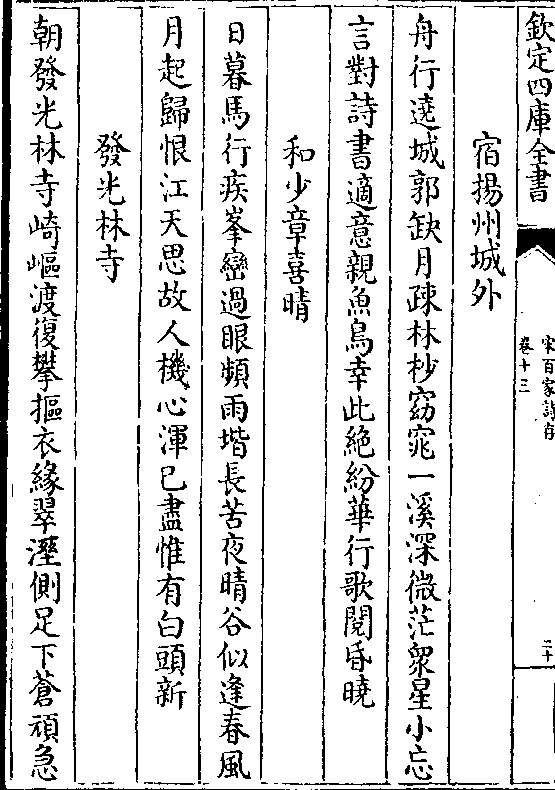 欽定四庫全書
宋百家詩存
卷十三
二十
宿揚州城外
舟行遶城郭缺月疎林杪窈窕一溪深微茫衆星小忘
言對詩書適意親魚鳥幸此絶紛華行歌閲昏曉
和少章喜晴
日暮馬行疾峯巒過眼頻雨堦長苦夜晴谷似逢春風
月起歸恨江天思故人機心渾已盡惟有白頭新
發光林寺
朝發光林寺崎嶇渡復攀摳衣緣翠溼側足下蒼頑急